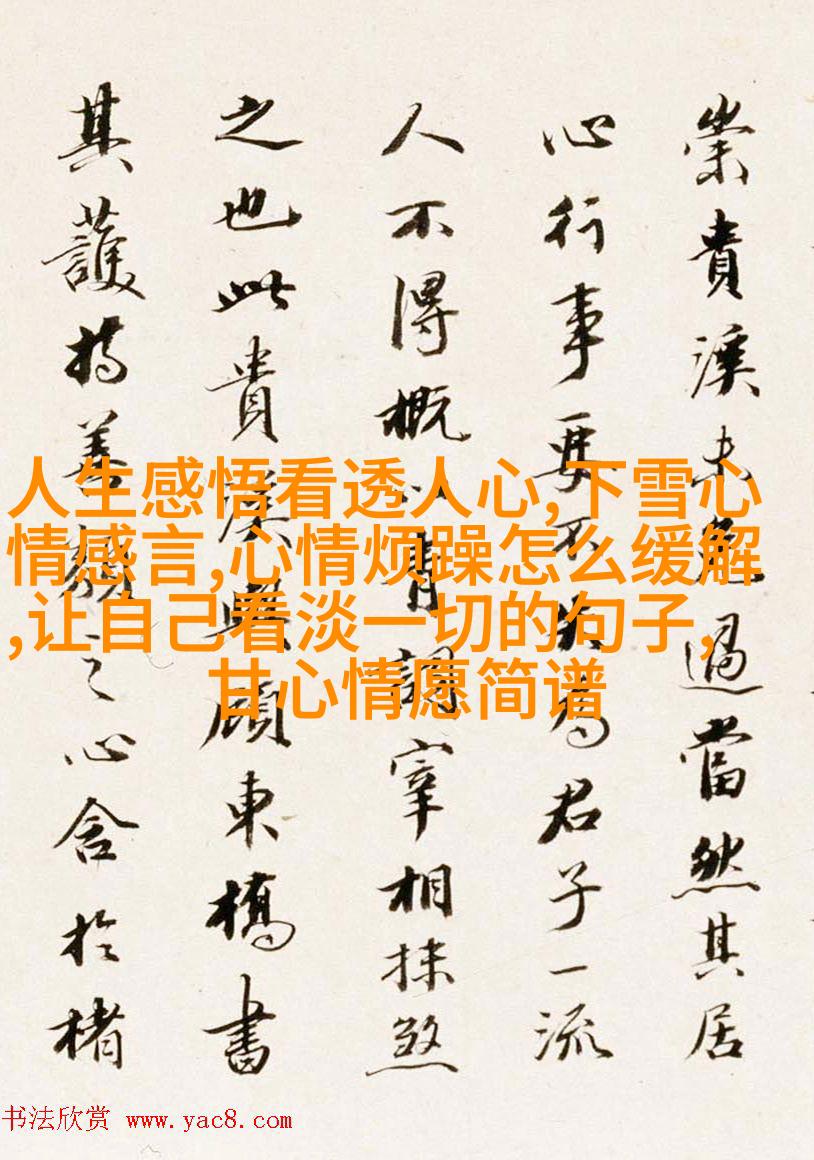 崇貴溪未免過當然其居
心行事要不失為君子一流
人不得概以青詞宰相抹煞
之也此貴溪與顧東橋書
其護持善類之心含於楮
人生感悟看透人心,下雪心
情感言,心情烦躁怎么缓解
,让自己看淡一切的句子,
甘心情愿简谱
书法欣赏 www.yac8.com